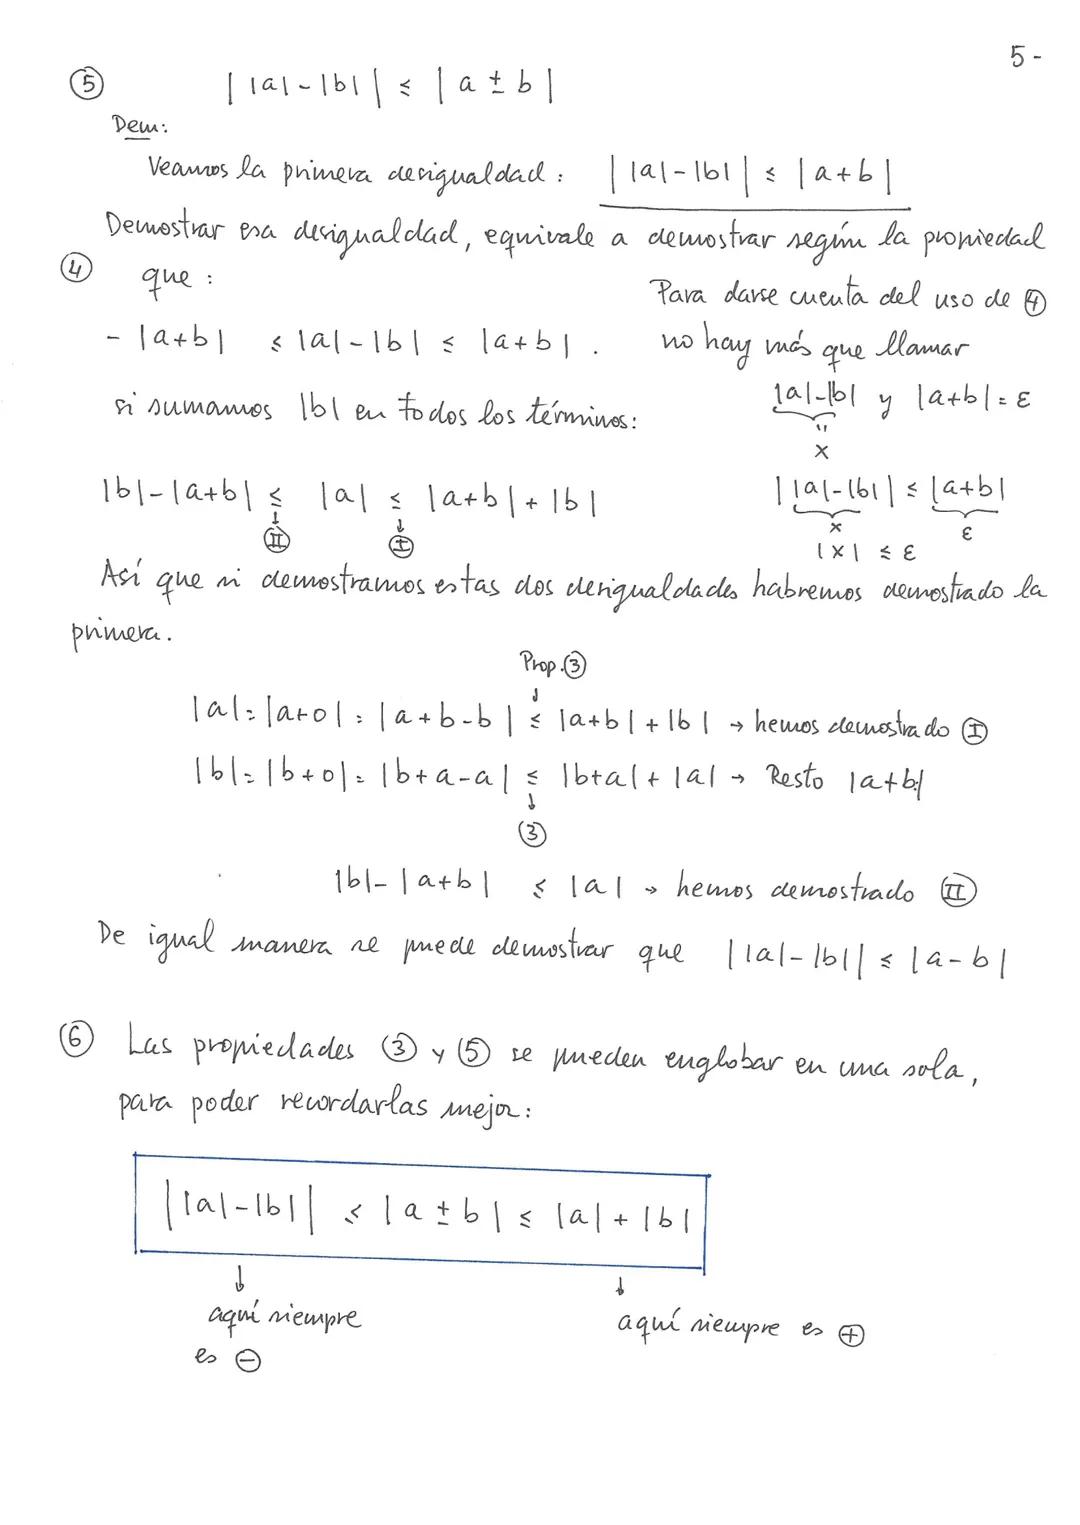 5-
⑤ ||a|-|b|| ≤ |a ± b|
Dem:
Veamos la primera desigualdad: ||a|-|b|| ≤ |a+b|
Demostrar esa desigualdad, equivale a demostrar según la propiedad
④ que:
-|a+b| ≤ |a|-|b| ≤ |a+b|.
Para darse cuenta del uso de ④
no hay más que llamar
|a|-|b| y |a+b|=ε
"
x
si sumamos |b| en todos los términos:
|b|-|a+b| ≤ |a| ≤ |a+b|+|b|
↓ ↓
Ⅱ Ⅰ
||a|-|b|| ≤ |a+b|
x ε
|x| ≤ ε
Así que si demostramos estas dos desigualdades habremos demostrado la
primera.
Prop.③
↓
|a|=|a+0|=|a+b-b| ≤ |a+b|+|b| → hemos demostrado Ⅰ
|b|=|b+0|=|b+a-a| ≤ |b+a|+|a| → Resto |a+b|
↓
③
|b|-|a+b| ≤ |a| → hemos demostrado Ⅱ
De igual manera se puede demostrar que ||a|-|b|| ≤ |a-b|
⑥ Las propiedades ③ y ⑤ se pueden englobar en una sola,
para poder recordarlas mejor:
||a|-|b|| ≤ |a ± b| ≤ |a|+|b|
↓ ↓
aquí siempre
es ⊖
aquí siempre es ⊕